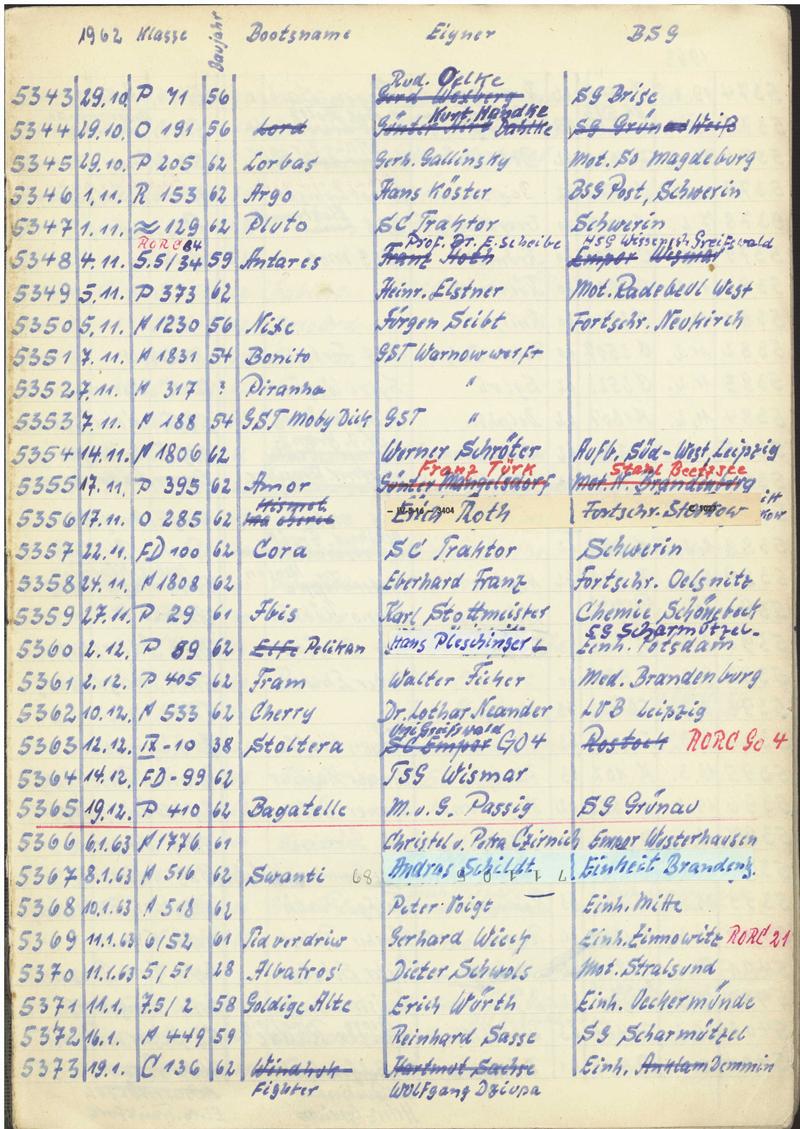 1962 Klasse Baujahr Bootsname Eigner BSG
Rud. Oelke
5343 29.10. P 71 56 Gerd Wesberg SG Brise
Kurt Handke
5344 29.10. O 191 56 Lord Günter Babicke SG Grünau Weiß
5345 29.10. P 205 62 Lorbas Gerh. Gallinsky Mot. So Magdeburg
5346 1.11. R 153 62 Argo Hans Köster BSG Post, Schwerin
5347 1.11. ≈ 129 62 Pluto SC Traktor Schwerin
RORC 84 Prof. Dr. E. Scheibe HSG Wissensch. Greifswald
5348 4.11. 5.5/34 59 Antares Franz Koch Empor Wismar
5349 5.11. P 373 62 Heinr. Elstner Mot. Radebeul West
5350 5.11. H 1230 56 Nixe Jürgen Seibt Fortschr. Neukirch
5351 7.11. H 1831 54 Bonito GST Warnowwerft
5352 7.11. H 317 ? Piranha "
5353 7.11. H 188 54 GST Moby Dick GST "
5354 14.11. H 1806 62 Werner Schröter Aufb. Süd-West, Leipzig
Franz Türk Stahl Beetzsee
5355 17.11. P 395 62 Amor Günter Mangelsdorf Mot. N. Brandenburg
Kismet
5356 17.11. O 285 62 Erich Roth Fortschr. Storkow
5357 22.11. FD 100 62 Cora SC Traktor Schwerin
5358 24.11. H 1808 62 Eberhard Franz Fortschr. Oelsnitz
5359 27.11. P 29 61 Ibis Karl Stottmeister Chemie Schönebeck
SG Scharmützel-
5360 2.12. P 89 62 Elfe Pelikan Hans Pleschinger Einh. Potsdam
5361 2.12. P 405 62 Tram Walter Ficher Med. Brandenburg
5362 10.12. H 533 62 Cherry Dr. Lothar Neander LVB Leipzig
Uni Greifswald
5363 12.12. IX-10 38 Stoltera SC Empor GO 4 Rostock RORC Go 4
5364 14.12. FD-99 62 TSG Wismar
5365 19.12. P 410 62 Bagatelle M. u. G. Passig SG Grünau
5366 6.1.63 H 1776 61 Christel u. Petra Czirnich Empor Westerhausen
5367 8.1.63 H 516 62 Swanti 68 Andras Schildt Einheit Brandenb.
5368 10.1.63 H 518 62 Peter Voigt Einh. Mitte
5369 11.1.63 6/52 61 Tidverdriw Gerhard Wiech Einh. Zinnowitz RORC 21
5370 11.1.63 5/51 28 Albatros Dieter Schwols Mot. Stralsund
5371 11.1. 7.5/2 58 Goldige Alte Erich Würth Einh. Ueckermünde
5372 16.1. H 449 59 Reinhard Sasse SG Scharmützel
5373 19.1. C 136 62 Windhuk Hartmut Sachse Einh. Anklam Demmin
Fighter Wolfgang Dziupa